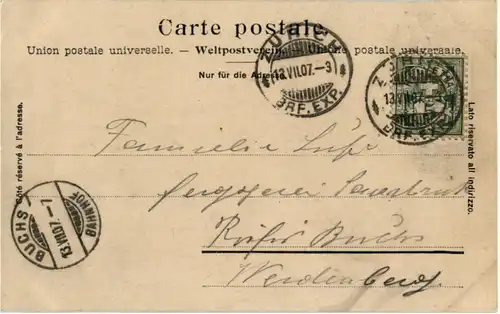 Carte postale.
Union postale universelle. — Weltpostverein. — Unione postale universale.
Nur für die Adresse.
ZÜRICH
13.VII.07.–3
BRF. EXP.
ZÜRICH
13.VII.07.
BRF. EXP.
Côté réservé à l'adresse.
Lato riservato all' indirizzo.
Familie
Buchs
Werdenberg
BUCHS
13.VII.07.–7
BAHNHOF